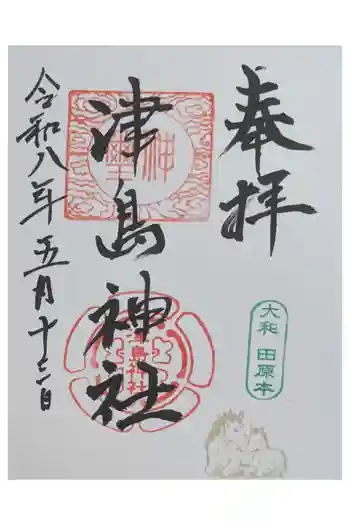 奉拝
大和 田原本
津島神社
津島神社
令和八年五月十六日